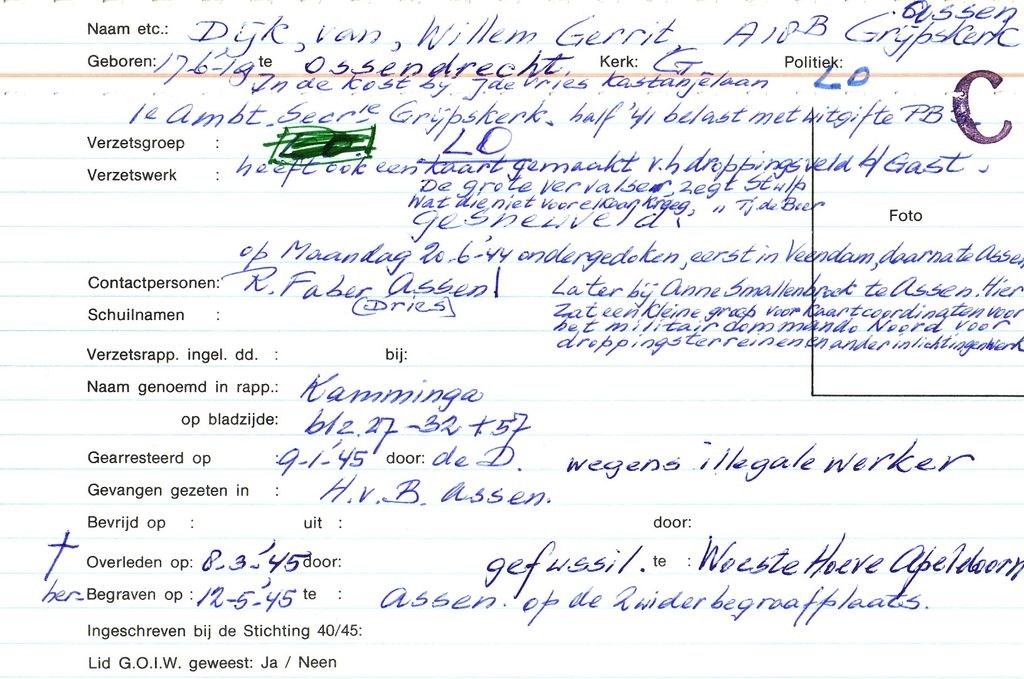 Assen
Naam etc.: Dijk, van, Willem Gerrit, A10B Grijpskerk
Geboren: 17-6-'19 te Ossendrecht. Kerk: G Politiek:
In de kost bij Jde Vries Kastanjelaan LO
1e Ambt. Secrie Grijpskerk. half '41 belast met uitgifte PB s. C
Verzetsgroep : LO
heeft ook een kaart gemaakt v.h droppingsveld 4/ Gast.
Verzetswerk :
De grote vervalser, zegt Stulp
Wat die niet voor elkaar kreeg, " Tj. de Boer
gesneuveld. Foto
op Maandag 20-6-'44 ondergedoken, eerst in Veendam, daarna te Assen
Contactpersonen: R. Faber Assen Later bij Anne Smallenbroek te Assen. Hier
(Dries) zat een kleine groep voor Kaartcoordinaten voor
Schuilnamen : het militair commando Noord voor
droppingsterreinen en ander inlichtingenwerk
Verzetsrapp. ingel. dd. : bij:
Naam genoemd in rapp.: Kamminga
op bladzijde: blz. 27-32 + 57
Gearresteerd op : 9-1-'45 door: de D. wegens illegale werker
Gevangen gezeten in : H.v.B. Assen.
Bevrijd op : uit : door:
† Overleden op: 8-3-'45 door: gefussil. te : Woeste Hoeve Apeldoorn
her- Begraven op : 12-5-'45 te : Assen. op de Zuiderbegraafplaats.
Ingeschreven bij de Stichting 40/45:
Lid G.O.I.W. geweest: Ja / Neen